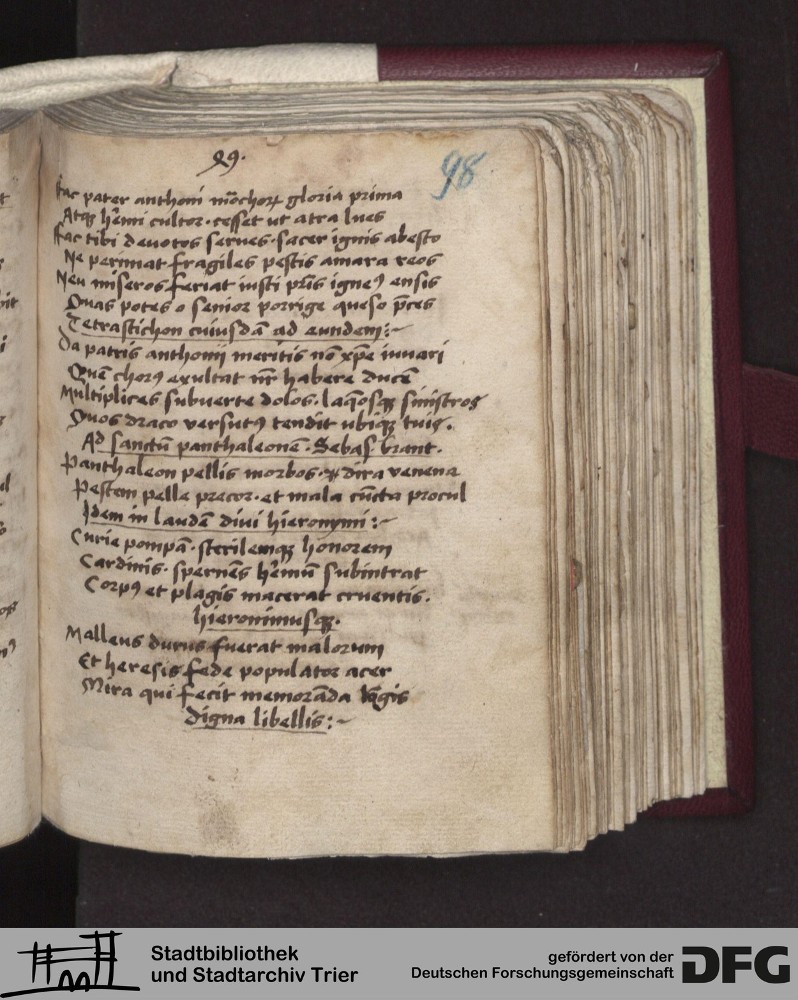 99.
98
Fac pater anthoni mōchoꝝ gloria prima
Atqꝫ hēmi cultor. cesset ut atra lues
Fac tibi deuotos serues. sacer ignis abesto
Ne perimat fragiles pestis amara reos
Neu miseros feriat iusti pr̄is igneꝰ ensis
Quas potes o senior porrige queso p̄ces
Tetrastichon cuiusdā ad eundem:~
Da patris anthonij meritis nos xp̄e iuuari
Quē chorꝰ exultat nr̄ habere ducē
Multiplices subuerte dolos. laq̄osqꝫ sinistros
Quos draco versutꝰ tendit ubiqꝫ tuis.
Ad sanctū panthaleonē. Sebas. brant.
Panthaleon pellis morbos. et dira venena
Pestem pelle precor. et mala cūcta procul
Idem in laudē diui hieronymi:~
Curie pompā. sterilemqꝫ honorem
Cardinis. spernēs hēmū subintrat
Corpꝰ et plagis macerat cruentis.
hieronimusqꝫ.
Malleus durus fuerat malorum
Et heresis fede populator acer
Mira qui fecit memorāda
digna libellis:~
Stadtbibliothek
und Stadtarchiv Trier
gefördert von der
Deutschen Forschungsgemeinschaft
DFG